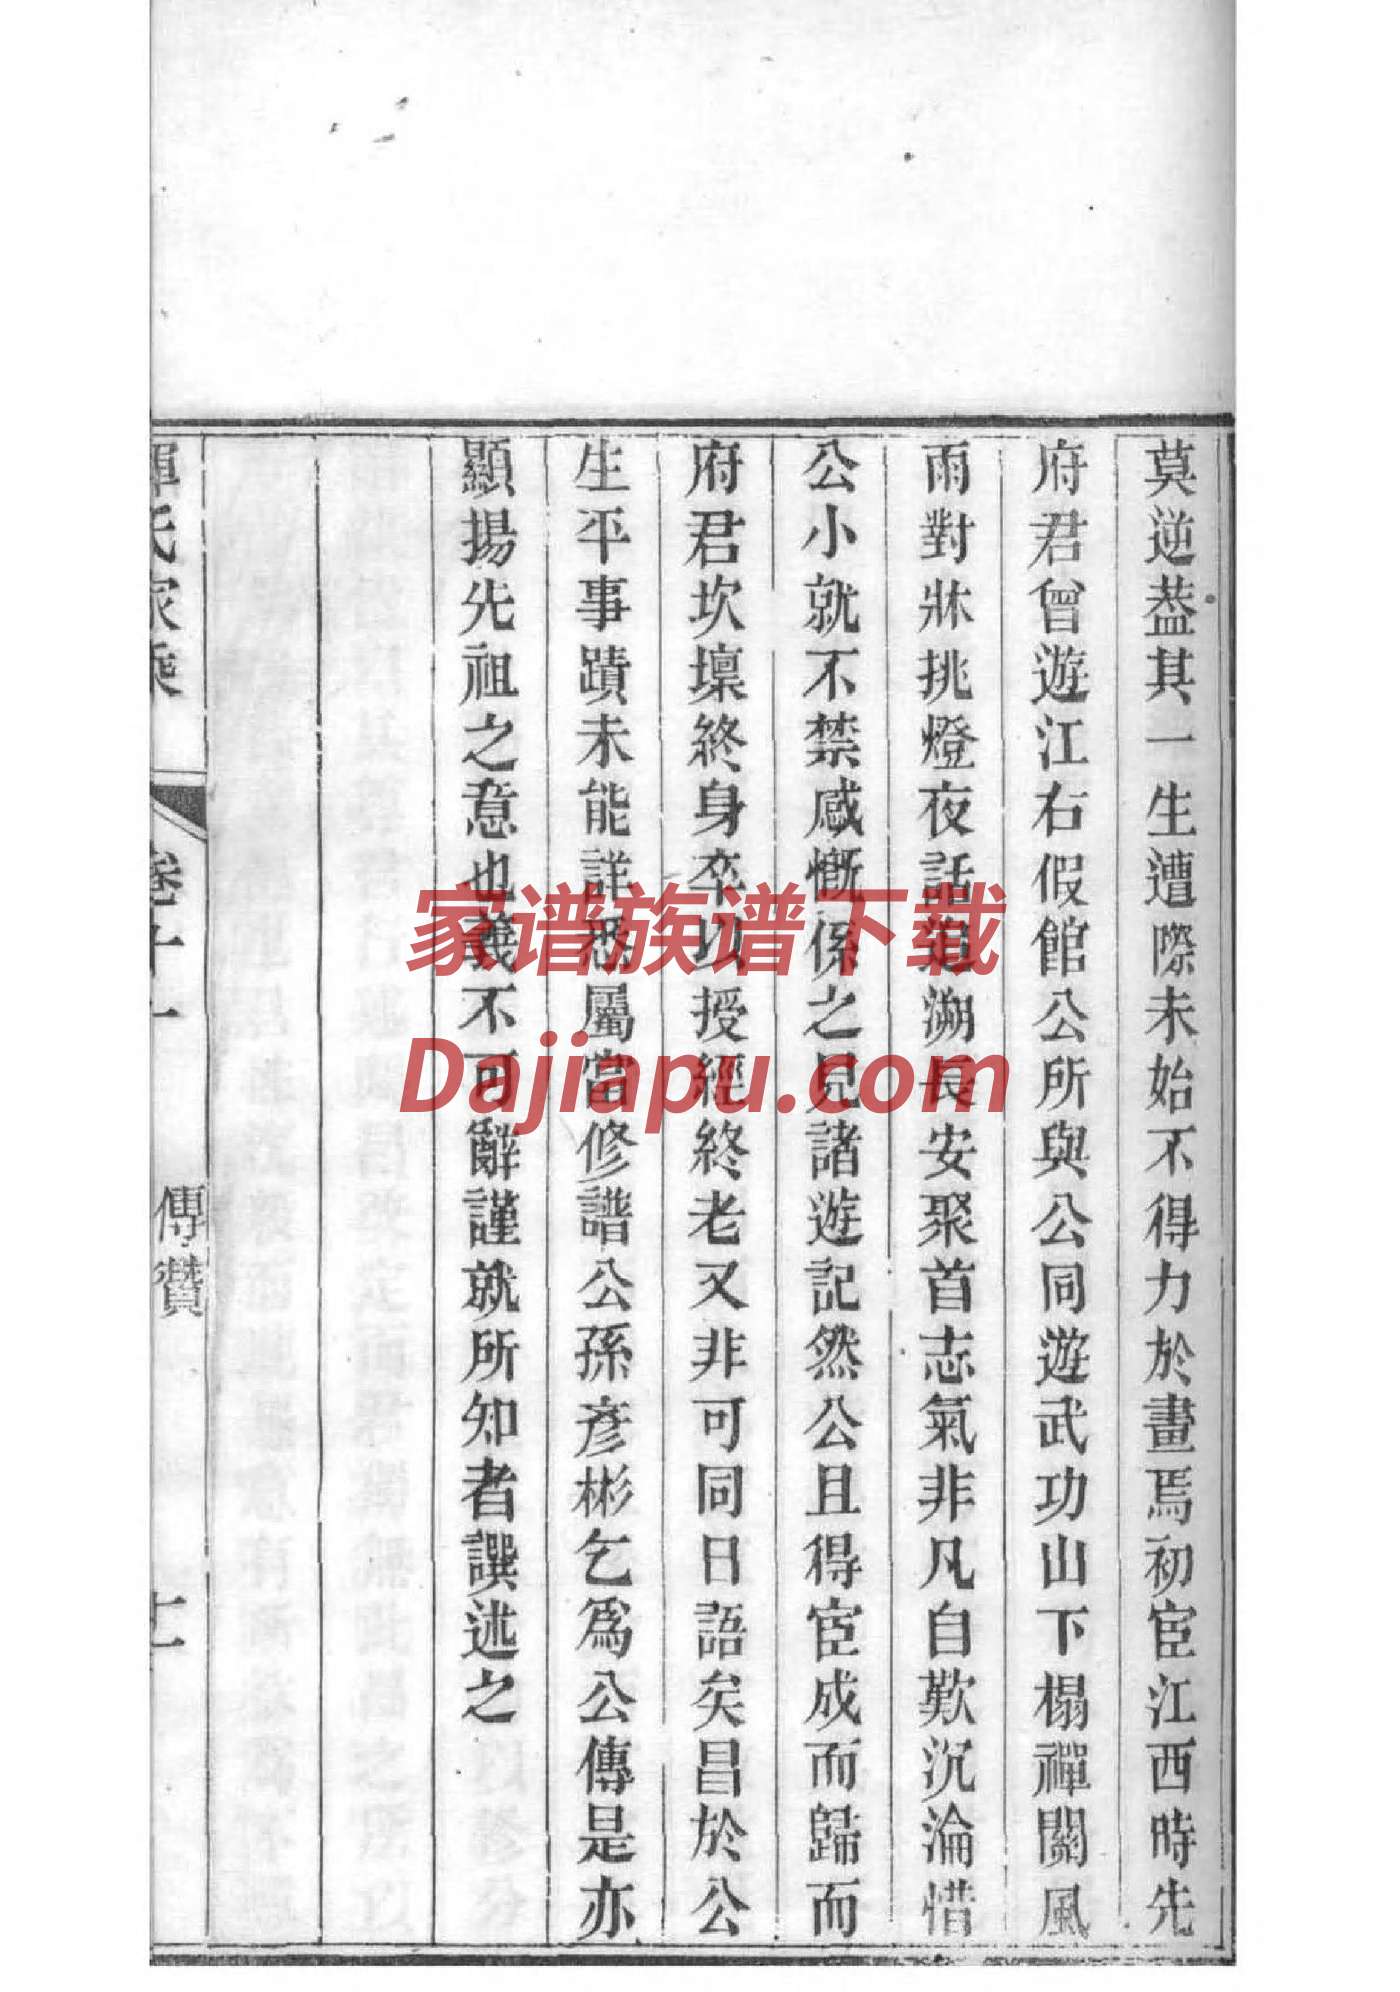 莫逆葢其一生遭際未始不得力於畫焉初宦江西時先
府君曾遊江右假館公所與公同遊武功山下榻禪關風
雨對牀挑燈夜話追溯長安聚首志氣非凡自歎沉淪惜
公小就不禁感慨係之見諸遊記然公且得宦成而歸而
府君坎壈終身卒以授經終老又非可同日語矣昌於公
生平事蹟未能詳悉屬當修譜公孫彥彬乞爲公傳是亦
顯揚先祖之意也義不可辭謹就所知者譔述之
氏家乘 卷十一 傳贊
家谱族谱下载
Dajiapu.com